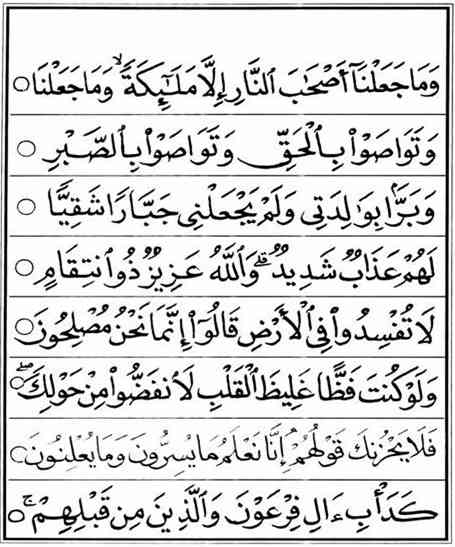 وَمَا جَعَلْنَآ أَصْحَٰبَ ٱلنَّارِ إِلَّا مَلَٰٓئِكَةًۙ وَمَا جَعَلْنَا
وَتَوَاصَوْا۟ بِٱلْحَقِّ وَتَوَاصَوْا۟ بِٱلصَّبْرِ
وَبَرًّۢا بِوَٰلِدَتِى وَلَمْ يَجْعَلْنِى جَبَّارًا شَقِيًّا
لَهُمْ عَذَابٌ شَدِيدٌ ۗ وَٱللَّهُ عَزِيزٌ ذُو ٱنتِقَامٍ
لَا تُفْسِدُوا۟ فِى ٱلْأَرْضِ قَالُوٓا۟ إِنَّمَا نَحْنُ مُصْلِحُونَ
وَلَوْ كُنتَ فَظًّا غَلِيظَ ٱلْقَلْبِ لَٱنفَضُّوا۟ مِنْ حَوْلِكَ ۖ
فَلَا يَحْزُنكَ قَوْلُهُمْ ۘ إِنَّا نَعْلَمُ مَا يُسِرُّونَ وَمَا يُعْلِنُونَ
كَدَأْبِ ءَالِ فِرْعَوْنَ وَٱلَّذِينَ مِن قَبْلِهِمْ ۚ